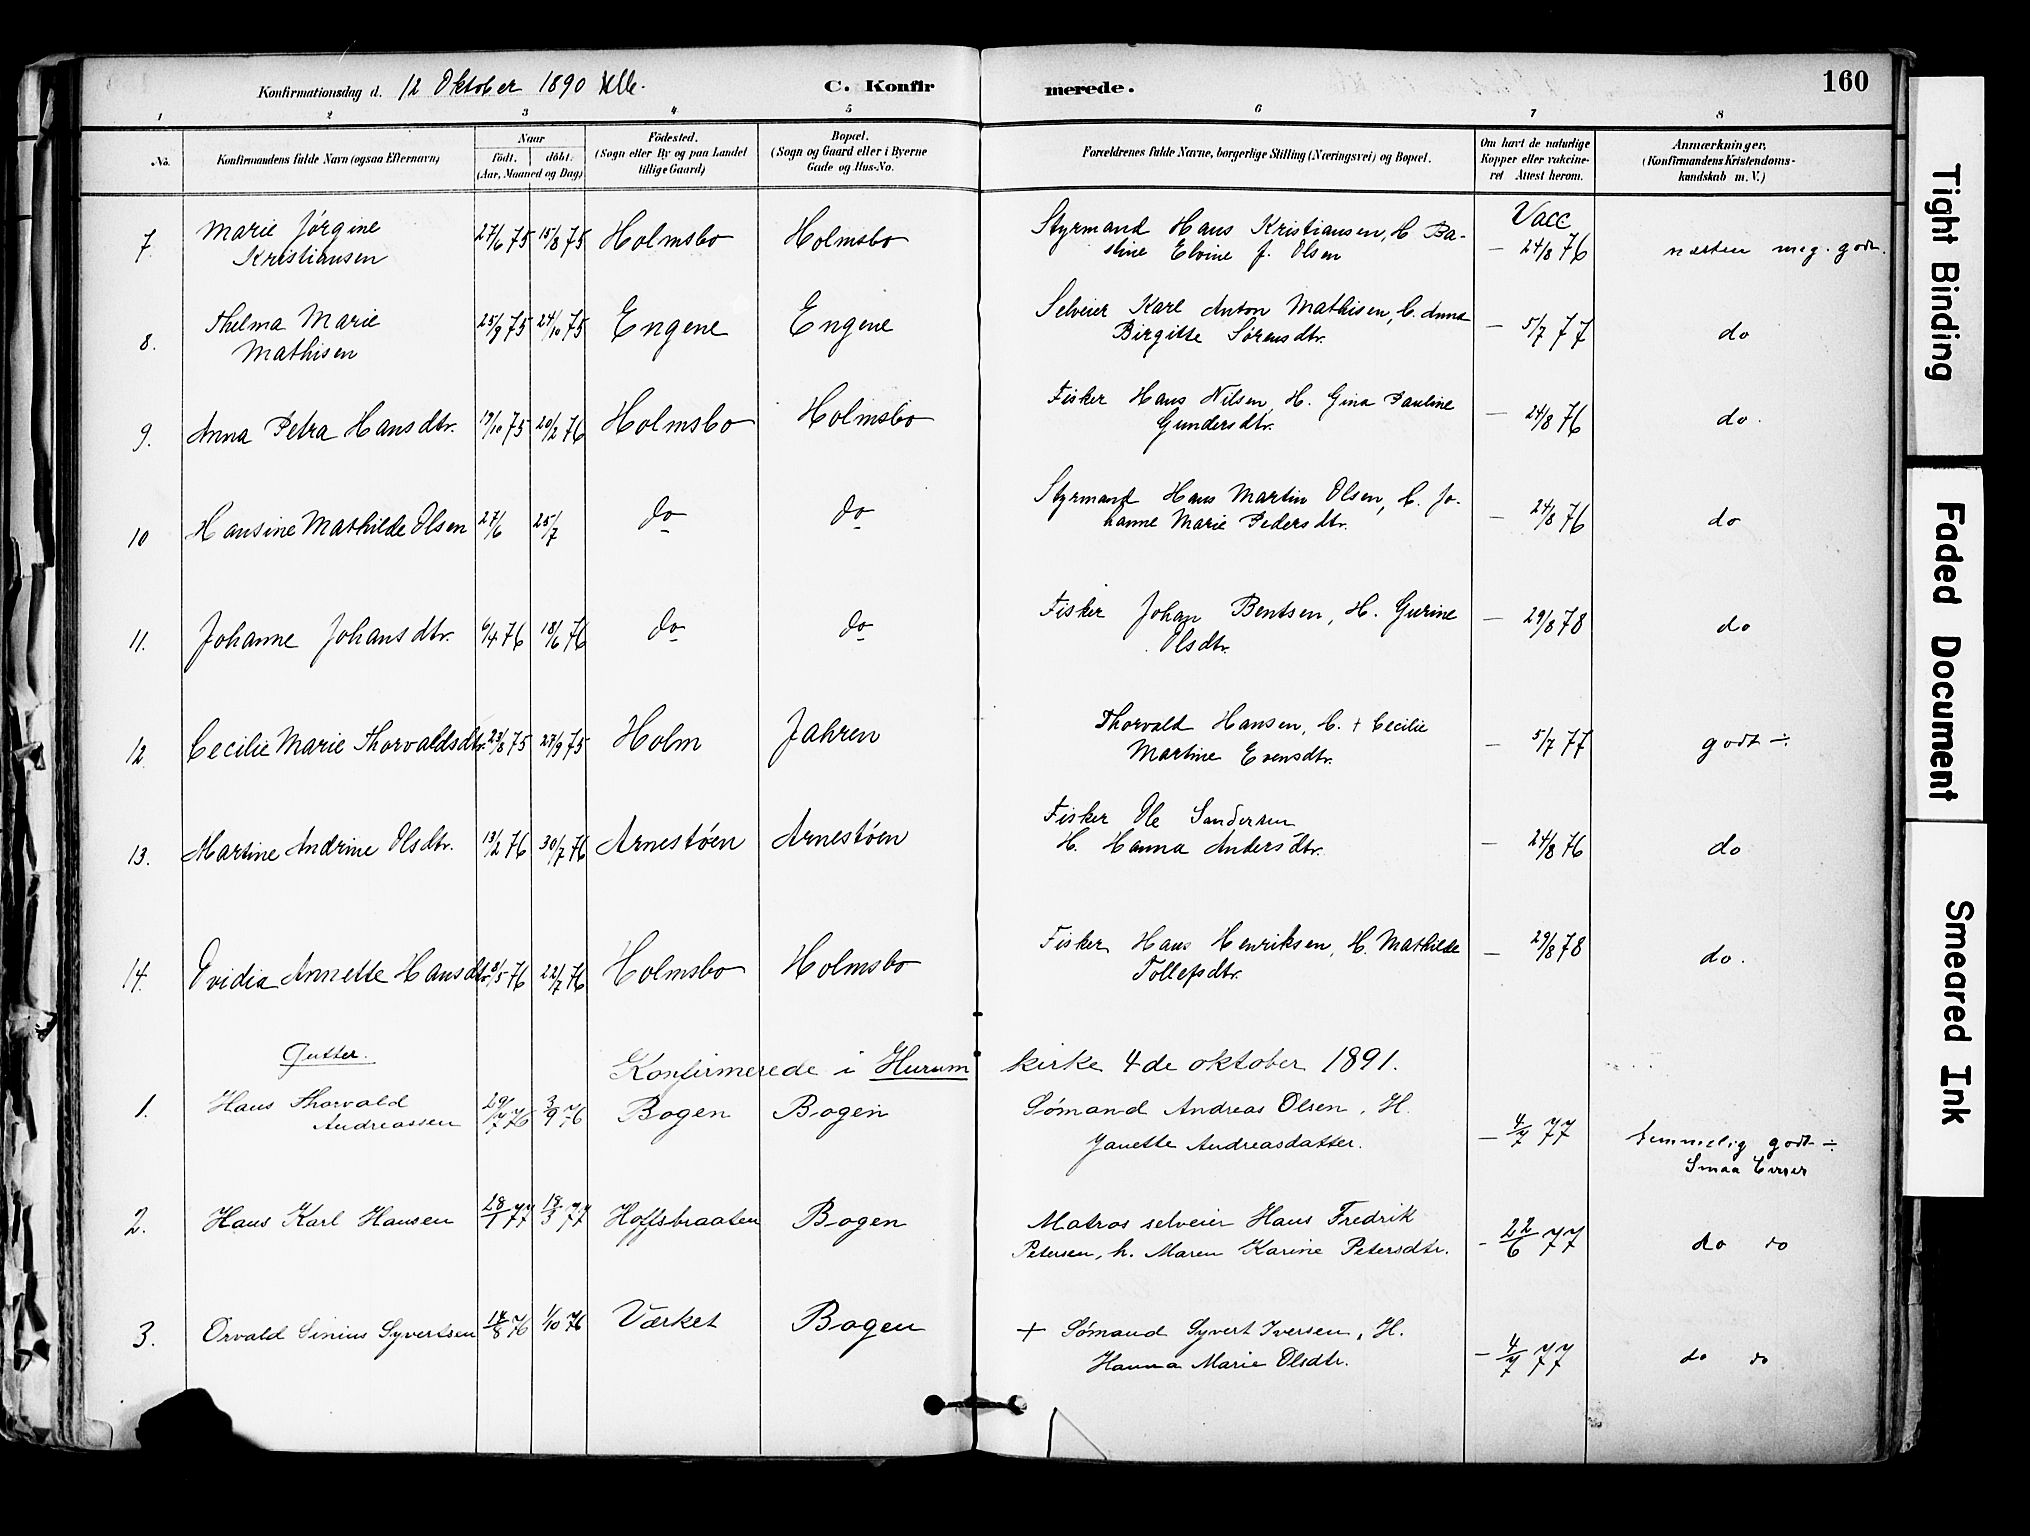 Konfirmationsdag d. 12 Oktober 1890
C. Konfirmerede.
160
1 2 3 4 5 6 7 8
No.
Konfirmandens fulde Navn (ogsaa Efternavn)
Naar
födt. döbt.
(Aar, Maaned og Dag)
Födested.
(Sogn eller By og paa Landet
tillige Gaard)
Bopæl.
(Sogn og Gaard eller i Byerne
Gade og Hus-No.
Forældrenes fulde Navne, borgerlige Stilling (Næringsvei) og Bopæl.
Om havt de naturlige
Kopper eller vakcine-
ret Attest herom.
Anmærkninger.
(Konfirmandens Kristendoms-
kundskab m. V.)
7. Marie Jørgine
Kristiansen
27/6 75 15/8 75 Holmsbo Holmsbo
Styrmand Hans Kristiansen, H. Ba-
stine Elvine f. Olsen
Vacc
– 24/8 76
næsten meg. godt.
8. Thelma Marie
Mathisen
25/9 75 24/10 75 Engene Engene
Selveier Karl Anton Mathisen, H. Anna
Birgitte Sørensdtr.
– 5/7 77 do
9. Anna Petra Hansdtr. 19/10 75 20/2 76 Holmsbo Holmsbo
Fisker Hans Nilsen, H. Gina Pauline
Gundersdtr.
– 24/8 76 do.
10 Hansine Mathilde Olsen 27/6 25/7 do do
Styrmand Hans Martin Olsen, H. Jo-
hanne Marie Pedersdtr.
– 24/8 76 do
11. Johanne Johansdtr. 6/4 76 18/6 76 do do
Fisker Johan Bentsen, H. Gurine
Olsdtr.
– 29/8 78 do
12. Cecilie Marie Thorvaldsdtr. 23/8 75 27/9 75 Holm Jahren
Thorvald Hansen, H. + Cecilie
Martine Evensdtr.
– 5/7 77 godt ÷
13. Martine Andrine Olsdtr. 13/2 76 30/7 76 Arnestøen Arnestøen
Fisker Ole Sandersen
H. Hanna Andersdtr.
– 24/8 76 do
14. Ovidia Annette Hansdtr. /5 76 22/7 76 Holmsbo Holmsbo
Fisker Hans Henriksen, H. Mathilde
Tollefsdtr.
– 29/8 78 do.
Gutter.
Konfirmerede i Hurum kirke 4de oktober 1891.
1. Hans Thorvald
Andreassen
29/7 76 3/9 76 Bogen Bogen
Sømand Andreas Olsen, H.
Janette Andreasdatter.
– 4/7 77
temmelig godt ÷
Smaa
2. Hans Karl Hansen 28/1 77 18/3 77 Hoffsbraaten Bogen
Matros selveier Hans Fredrik
Petersen, h. Maren Karine Petersdtr.
– 22/6 77 do do
3. Orvald Sinius Syvertsen 14/8 76 1/10 76 Værket Bogen
+ Sømand Syvert Iversen, H.
Hanna Marie Olsdtr.
– 4/7 77 do do
Tight Binding
Faded Document
Smeared Ink